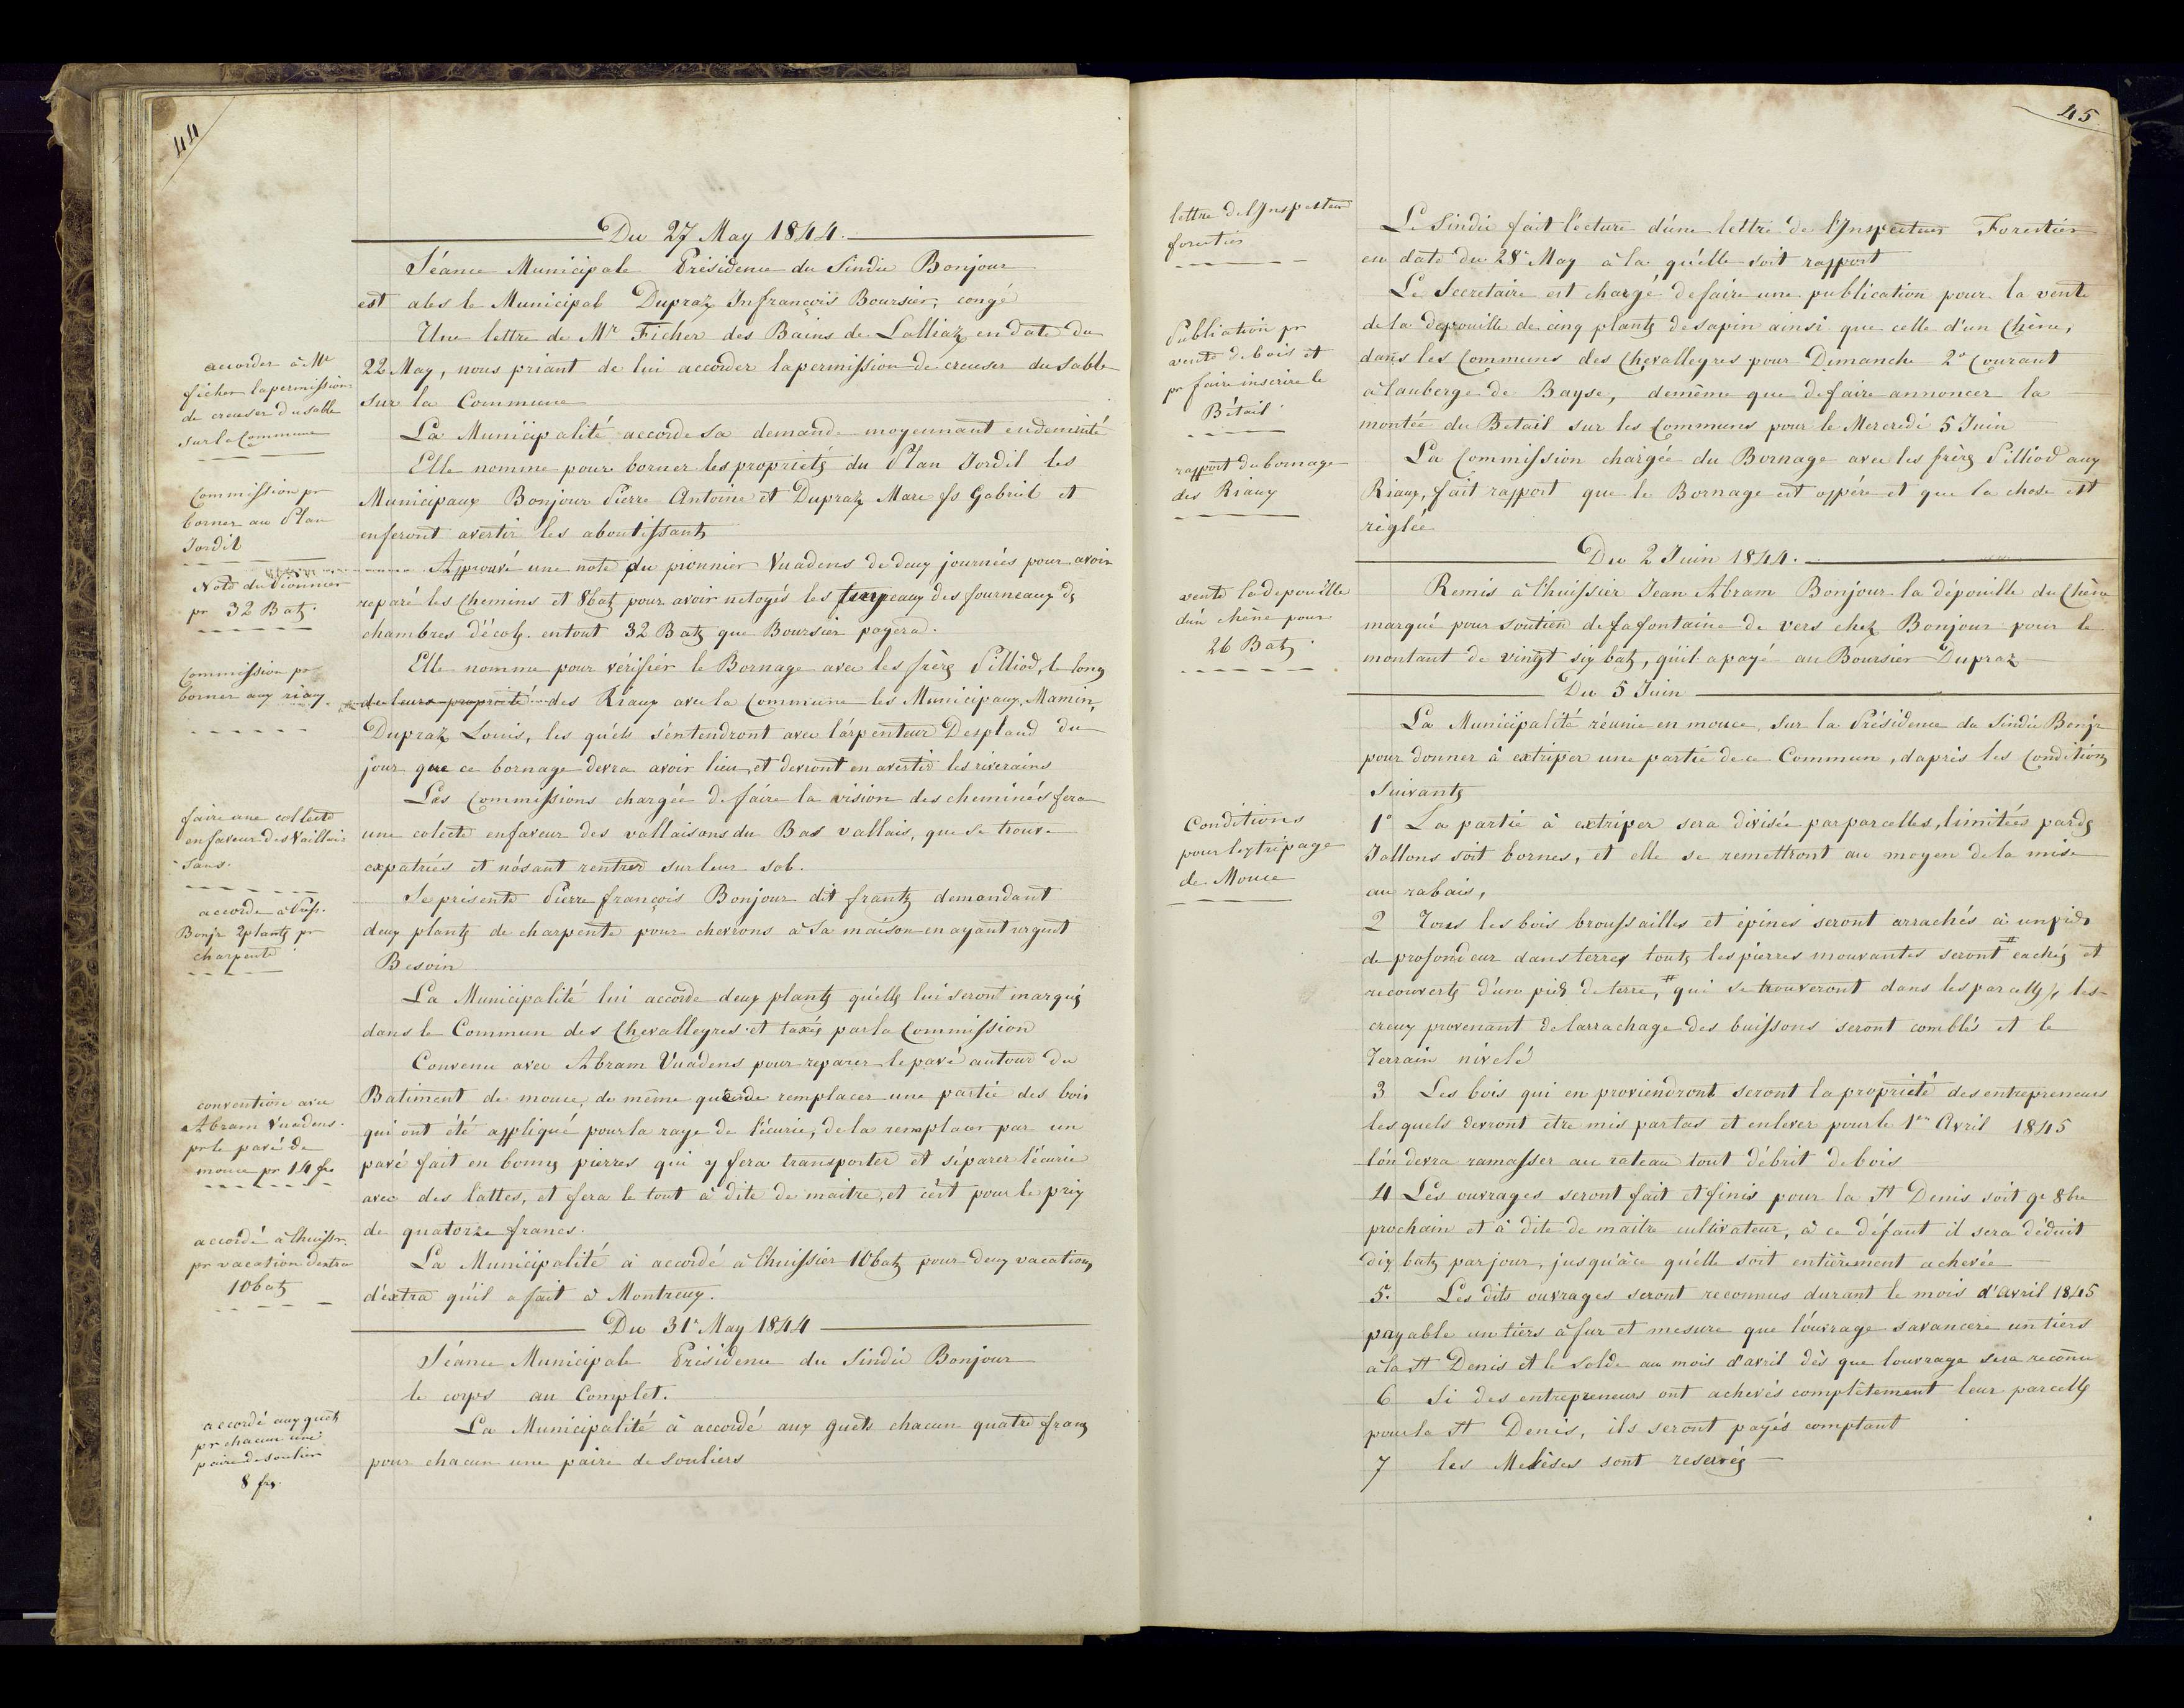 44
Du 27 May 1844.
Séance Municipale Présidence du Sindic Bonjour
est abs le Municipal Dupraz Jnfrançois Boursier, congé
Une lettre de Mr Ficher des Bains de Lalliaz en date du
accorder à Mr
ficher la permission
de creuser du sable
sur le Commune
22 May, nous priant de lui accorder la permission de creuser du sable
sur la Commune
La Municipalité accorde sa demande moyennant endemnité
Elle nomme pour borner les propriétés du Plan Jordil les
Commission pr
borner au Plan
Jordil
Municipaux Bonjour Pierre Antoine et Dupraz Marc fs Gabriel et
enferont avertir les aboutissants
Note du Pionnier
pr 32 Batz.
Approuvé une note du pionnier Vuadens de deux journées pour avoir
reparé les Chemins et 8batz pour avoir netoyés les des fourneaux ds
chambres d'écols. en tout 32 Batz que Boursier payera.
Commission pr
borner aux riaux
Elle nomme pour vérifier le Bornage avec les frères Pilliod, le long
de leurs propriété des Riaux avec la Commune les Municipaux Mamin,
Dupraz Louis, les quéls s'éntendront avec l'árpenteur Despland du
jour que ce bornage devra avoir lieu, et devront en avertir les riverains
faire une collecte
en faveur des Vaillai
sans.
Les Commissions chargée de faire la vision des cheminés fera
une colecte enfaveur des vallaisons du Bas vallais, que se trouve
expatriés et nósant rentrer sur leur sol.
accordé à Prefs.
Bonjr 2plants pr
charpente
Se présente Pierre françois Bonjour dit frantz demandant
deux plants de charpente pour chevrons à sa maison en ayant urgent
Besoin
La Municipalité lui accorde deux plants quélls lui seront marqués
dans le Commun des Chevalleyres et taxés par la Commission
convention avec
Abram Vuadens
pr le pavé de
mouce pr 14 frs
Convenu avec Abram Vuadens pour reparer le pavé autour du
Batiment de mouce, de même que de remplacer une partie des bois
qui ont été appliqué pour la raye de l'écurie, de la remplacer par un
pavé fait en bonns pierres qui y fera transporter et séparer l'écurie
avec des lattes, et fera le tout à dite de maitre, et cért pour le prix
de quatorze francs.
accordé à lhuissr.
pr vacation dextra
10batz
La Municipalité à accordé à lhuissier 10batz pour deux vacations
d'éxtra qu'il a fait à Montreux.
Du 31e May 1844
Séance Municipale Présidence du Sindic Bonjour
le corps au Complet.
accordé aux guets
pr chacun une
paire de soulier
8 frs.
La Municipalité à accordé aux guets chacun quatre franz
pour chacun une paire de souliers
45
lettre de lInspecteur
forestier
Le Sindic fait lécture d'une lettre de l'Inspecteur Forestier
en date du 28e May à la quélle soit rapport
Publication pr
vente de bois et
pr faire inscrire le
Bétail
Le Secretaire est chargé defaire une publication pour la vente
de la depouille de cinq plants desapin ainsi que celle d'un Chène,
dans les Communs des Chevalleyres pour Dimanche 2e Courant
à lauberge de Bayse, demême que defaire annoncer la
montée du Bétail sur les Communs pour le Mercredi 5 Juin
rapport du bornage
des Riaux
La Commission chargée du Bornage avec les frères Pilliod aux
Riaux, fait rapport que le Bornage est oppéré et que la chose est
réglée
Du 2 Juin 1844.
vente la depouille
d'ún chêne pour
26 Batz.
Remis à l'huissier Jean Abram Bonjour la dépouille du Chêne
marqué pour soutien de fafontaine de vers chez Bonjour pour le
montant de vingt six batz, qu'il a payé au Boursier Dupraz
Du 5 Juin
La Municipalité réunie en mouce, sur la Présidence du Sindic Bonjr
pour donner à extriper une partie de ce Commun, daprès les Conditions
Suivants
Conditions
pour lextripage
de Mouce
1° La partie à extriper sera divisée par parcelles, limitées par ds
Jallons soit bornes, et elle se remettront au moyen de la mise
au rabais,
2 Tous les bois broussailles et épines seront arrachés à un pied
de profondeur dans terre, touts les pierres mouvantes seront # cachés et
recouverts d'un pied de terre, # qui se trouveront dans les parcells, les
creux provenant de larrachage des buissons seront comblés et le
Terrain nivelé
3 Les bois qui en proviendront seront la propriété des entrepreneurs
les quels devront être mis par tas et enlever pour le 1er Avril 1845
lón devra ramasser au rateau tout débrit de bois
4 Les ouvrages seront fait et finis pour la St Denis soit 9e 8bre
prochain et à dite de maitre cultivateur, à ce défaut il sera déduit
dix batz par jour, jusqu'àce qu'élle soit entièrement achevée
5. Les dits ouvrages seront reconnus durant le mois d'avril 1845
payable un tiers à fur et mesure que lóuvrage savancere un tiers
à la St Denis et le solde au mois d'avril dès que louvrage sera reconnu
6 Si des entrepreneurs ont achevés complêtement leur parcells
pour la St Denis, ils seront payés comptant
7 les Melèses sont reservés